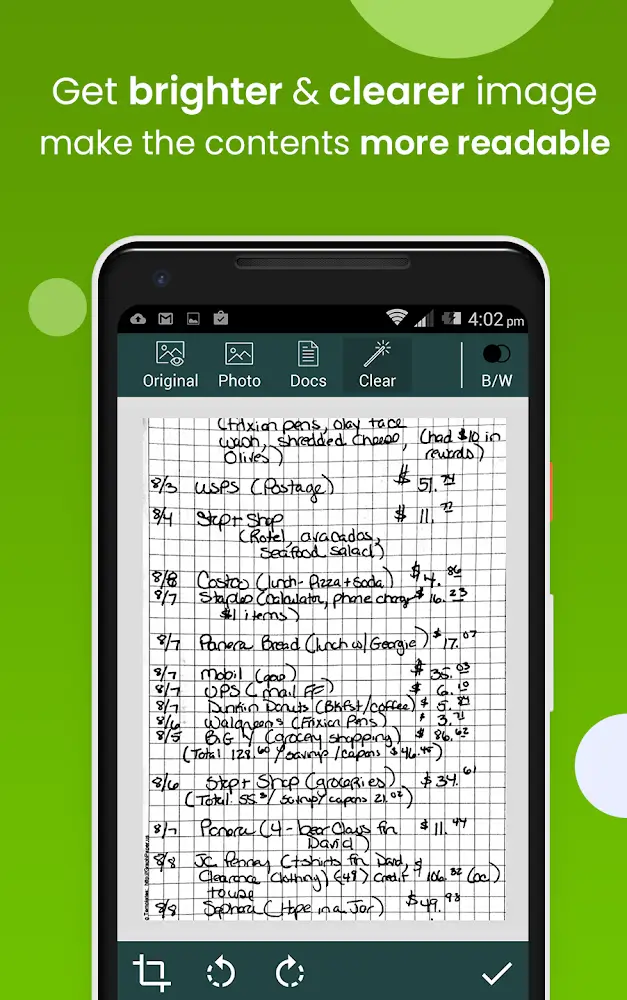 Get brighter & clearer image
make the contents more readable
4:02 pm
Original Photo Docs Clear B/W
(Frixion pens, olay face
wash, shredded cheese, (had $10 in
Olives) rewards)
8/3 USPS (Postage) $ 51.74
8/4 Stop + Shop $ 11.77
(Rotel, avacados,
seafood salad)
8/8 Costco (lunch - Pizza + soda) $ 4.86
8/7 Staples (calculator, phone charg $ 16.23
$1 items)
8/7 Panera Bread (lunch w/ Georgie) $ 17.07
8/7 Mobil (gas) $ 35.03
8/7 UPS (mail FF) $ 6.10
8/7 Dunkin Donuts (BKfst/coffee) $ 5.84
8/6 Walgreens (Frixion Pens) $ 3.71
8/5 BIG Y (grocery shopping) $ 86.62
(Total 128.60 / savings /capons $46.45)
8/6 Stop + Shop (groceries) $ 34.61
(Total: 55. / savings capons 21.02)
8/7 Panera (4 - bear claws for $ 11.44
David)
8/8 JC Penney (t-shirts for David, $
Clearance Clothing) (-48) credit 106.32 (cc)
to use
8/8 Sephora (Hope in a Jar) $49.98